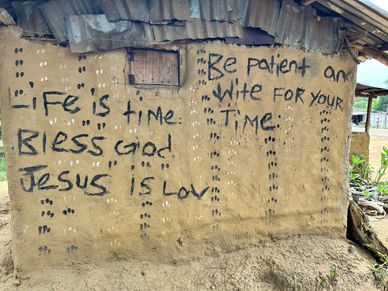 Life is time.
Bless God
Jesus is Lov
Be patient and
wite for your
Time